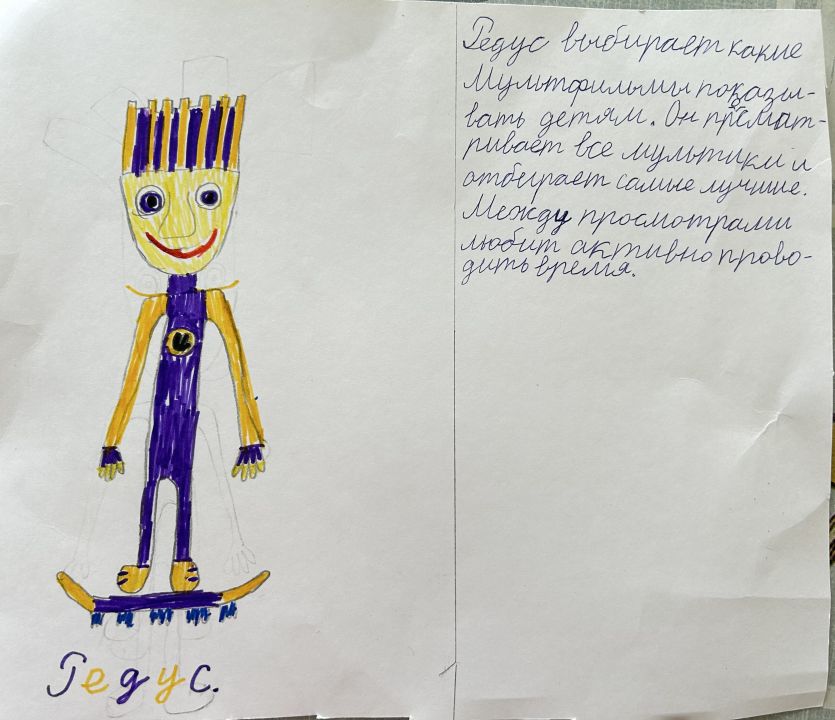 Гедус выбирает какие
мультфильмы показы-
вать детям. Он просмат-
ривает все мультики и
отбирает самые лучшие.
Между просмотрами
любит активно прово-
дить время.
Гедус.